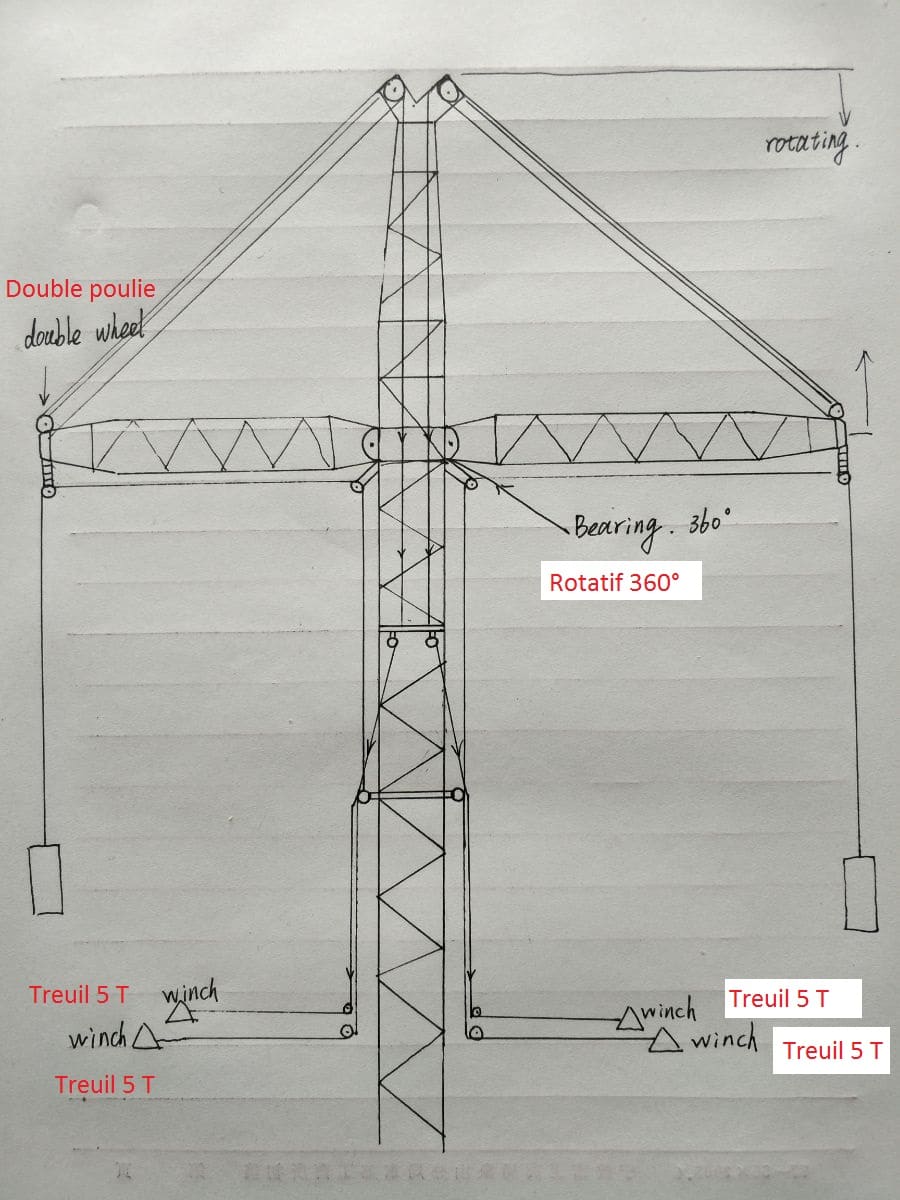 rotating.
Double poulie
double wheel
Bearing. 360°
Rotatif 360°
Treuil 5 T
winch
winch
Treuil 5 T
winch
Treuil 5 T
winch
Treuil 5 T